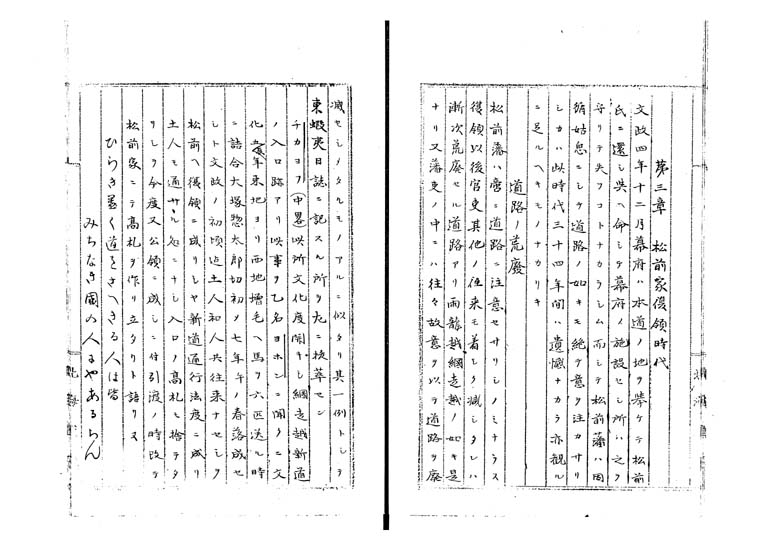 第三章　松前家復領時代
文政四年十二月幕府ハ本道ノ地ヲ挙ケテ松前
氏ニ還シ与ヘ命シテ幕府ノ施設セシ所ハ之ヲ
守リテ失フコトナカラシム而シテ松前藩ハ因
循姑息ニシテ道路ノ如キモ絶テ意ヲ注カサリ
シカハ此時代三十四年間ハ遺憾ナカラ亦観ル
ニ足ルヘキモノナカリキ
道路ノ荒廃
松前藩ハ啻ニ道路ニ注意セサリシノミナラス
復領以後官吏其他ノ往来モ著シク減シタレハ
漸次荒廃セル道路アリ雨龍越網走越ノ如キ是
ナリ又藩吏ノ中ニハ往々故意ヲ以テ道路ヲ廃
滅セシメタルモノアルニ似タリ其一例トシテ
東蝦夷日誌ニ記スル所ヲ左ニ抜萃セン
チカヨフ(中畧)以所文化度開キシ網走越新道
ノ入口跡アリ以事ヲ乙名ヨホンニ聞クニ文
化 年東地ヨリ西地増毛ヘ馬ヲ六匹送ル時
ニ詰合大塚惣太郎切初メ七年午ノ春落成セ
シト文政ノ初頃迄土人和人共往来ナセシヲ
松前ヘ復領ニ成リシヤ新道通行法度ニ成リ
土人モ通サル処ニナシ入口ノ高札モ捨テタ
リシヲ今度又公領ニ成シニ付引渡ノ時改テ
松前家ニテ高札ヲ作リ立タリト語リス
ひらき置く道をさへきる人は皆
みちなき国の人にやあるらん